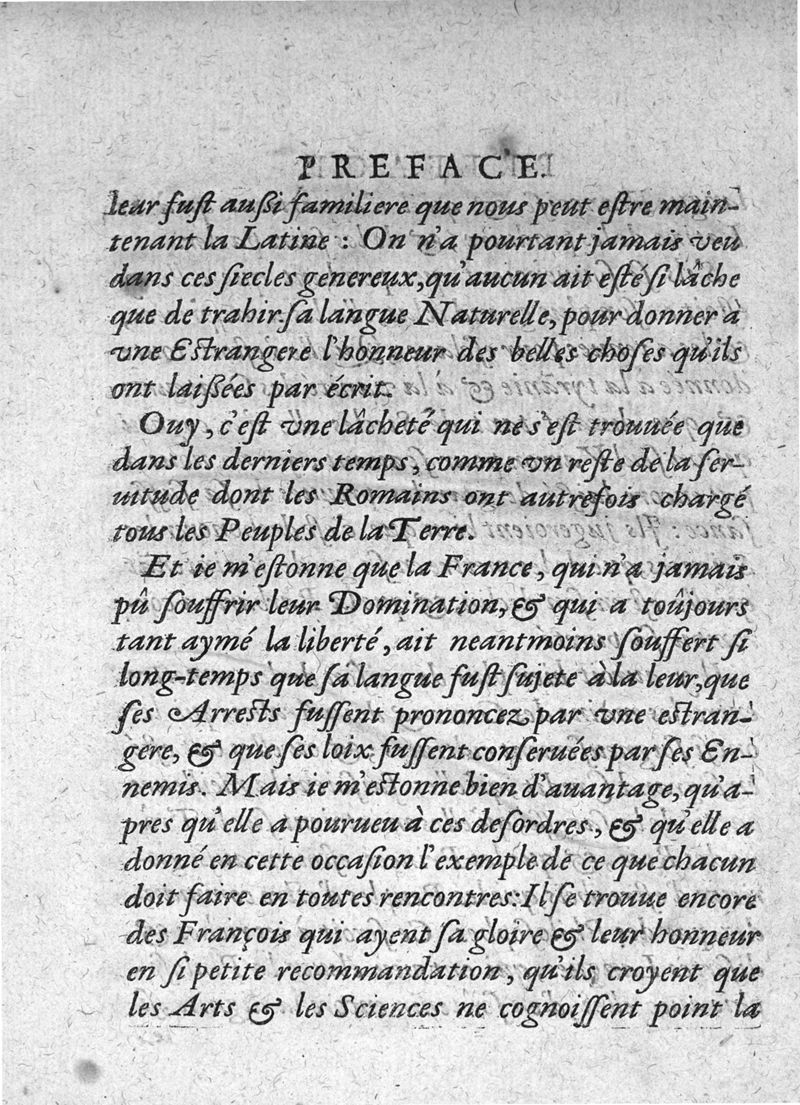 PREFACE.
leur fuſt außi familiere que nous peut eſtre main-
tenant la Latine : On n'a pourtant jamais veu
dans ces ſiecles genereux, qu'aucun ait eſté ſi lâche
que de trahir ſa langue Naturelle, pour donner à
vne Eſtrangere l'honneur des belles choſes qu'ils
ont laißées par écrit.
Ouy, c'eſt vne lâcheté qui ne s'eſt trouuée que
dans les derniers temps, comme vn reſte de la ſer-
uitude dont les Romains ont autrefois chargé
tous les Peuples de la Terre.
Et ie m'eſtonne que la France, qui n'a jamais
pû ſouffrir leur Domination, & qui a toûjours
tant aymé la liberté, ait neantmoins ſouffert ſi
long-temps que ſa langue fuſt ſujete à la leur, que
ſes Arreſts fuſſent prononcez par vne eſtran-
gere, & que ſes loix fuſſent conſeruées par ſes En-
nemis. Mais ie m'eſtonne bien d'auantage, qu'a-
pres qu'elle a pourueu à ces deſordres, & qu'elle a
donné en cette occaſion l'exemple de ce que chacun
doit faire en toutes rencontres: Il ſe trouue encore
des François qui ayent ſa gloire & leur honneur
en ſi petite recommandation, qu'ils croyent que
les Arts & les Sciences ne cognoiſſent point la